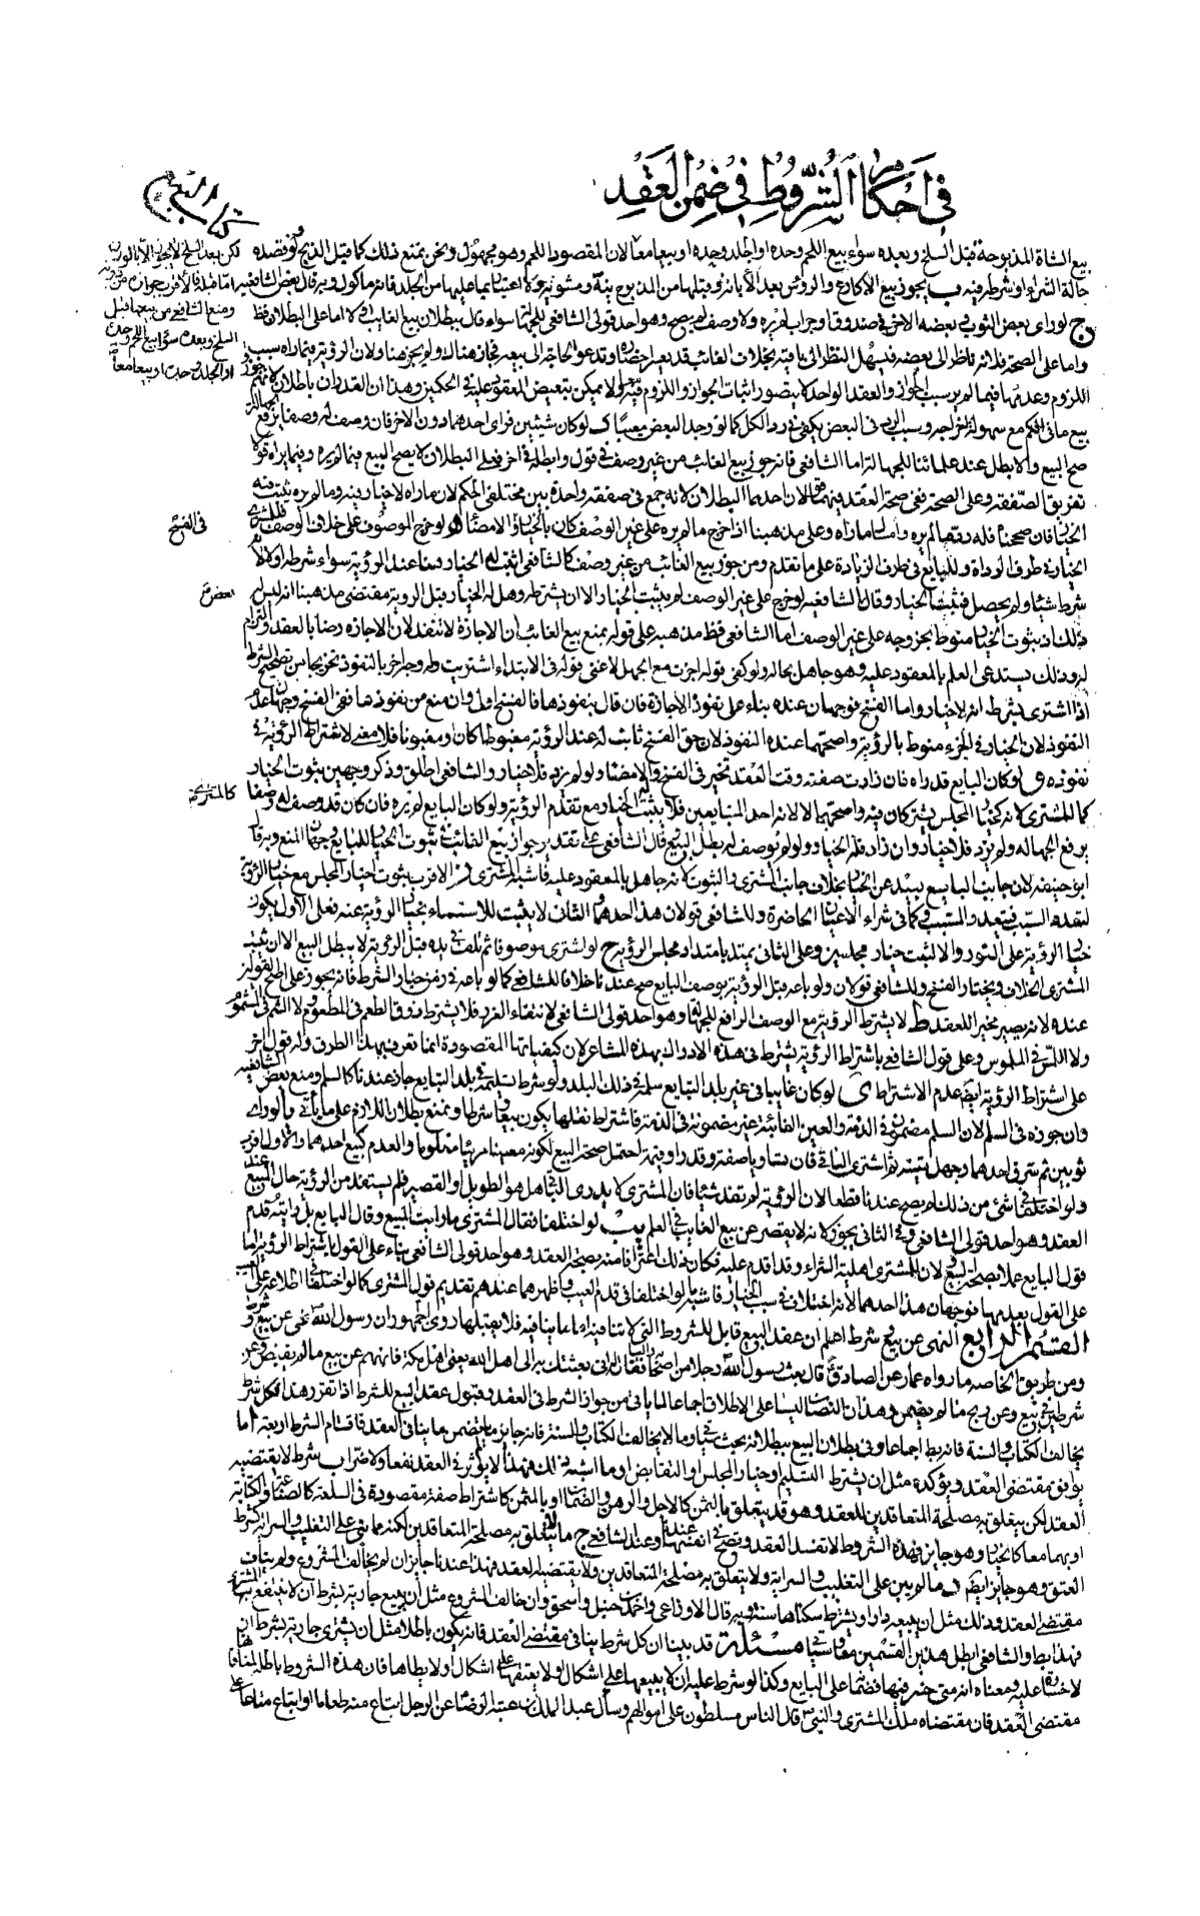 في احكام الشروط في ضمن العقد
كتاب البيع
بيع الشاة المذبوحة قبل السلخ وبعده سواء بيع اللحم وحده او الجلد وحده او بيعا معا لان المقصود اللحم وهو مجهول ونحن نمنع ذلك كما قبل الذبح
حالة الشراء او شرط فيه ب يجوز بيع الاكارع والرؤس بعد الأبانة وقبلها من المذبوح نية ومشوية ولا اعتبار بما عليها من الجلد فانه ماكول وبه قال بعض الشافعية
ج لو راى بعض الثوب وبعضه الاخر في صندوق او جراب لم يره ولا وصف له لم يصح وهو احد قولي الشافعي للجهالة سواء قال ببطلان بيع الغايب او لا اما على البطلان فظ
واما على الصحة فلانه ناظر الى بعضه فيسهل النظر الى باقيه بخلاف الغائب فقد يعسر احضاره وتدعو الحاجة الى بيعه فجاز هناك ولم يجز هنا ولان الرؤية فيما راه سبب
اللزوم وعدمها فيما لم ير سبب الجواز والعقد الواحد لا يتصور اثبات الجواز واللزوم فيه معا ولا يمكن تبعيض المعقود عليه في الحكمين وهذان العقدان باطلان لانهم
بيع ما في الكم مع سهولة اخراجه وسبب الرد في البعض يكفي في رد الكل كما لو وجد البعض معيبا ك لو كان شيئين فراى احدهما دون الاخر فان وصف له وصفا يرفع الجهالة
صح البيع والا بطل عند علمائنا للجهالة اما الشافعي فانه جوز بيع الغائب من غير وصف في قول وابطله في اخر فعلى البطلان لا يصح البيع فيما لم يره وفيما يراه قولا
تفريق الصفقة وعلى الصحة ففي صحة العقد فيهما قولان احدهما البطلان لانه جمع في صفقة واحدة بين مختلفي الحكم لان ما راه لا خيار فيه وما لم يره يثبت فيه
الخيار فان صححنا فله رد ما لم يره وامساك ما راه وعلى مذهبنا اذا خرج ما لم يره على غير الوصف كان بالخيار
الخيار في طرف الرداة وللبايع في طرف الزيادة على ما تقدم ومن جوز بيع الغائب من غير وصف كالشافعي اثبت له الخيار هنا عند الرؤية سواء شرطه او لا
شرط شيئا ولم يحصل فيثبت الخيار وقال الشافعية لو خرج على غير الوصف لم يثبت الخيار الا ان يشترط وهل له الخيار قبل الروية مقتضى مذهبنا انه ليس له
ذلك اذ ثبوت الخيار منوط بخروجه على غير الوصف اما الشافعي فظ مذهبه على قوله بمنع بيع الغائب ان الاجازة لا تنفذ لان الاجازه رضا بالعقد والتزام
له وذلك يستدعى العلم بالمعقود عليه وهو جاهل بحاله ولو كفى قوله اجزت مع الجهل لاغنى قوله في الابتداء اشتريت وله وجه اخر بالنفوذ تخريجا من تصحيح الشرط
اذا اشترى بشرط انه لا خيار واما الفسخ فوجهان عنده بناء على نفوذ الاجازة فان قال بنفوذها فالفسخ اولى وان منع من نفوذها ففي الفسخ وجهان عدم
النفوذ لان الخيار في الجزء منوط بالرؤية واصحهما عنده النفوذ لان حق الفسخ ثابت له عند الرؤية مغبوطا كان او مغبونا فلا معنى لاشتراط الرؤية في
نفوذه و لو كان البايع قد راه فان زادت صفته وقت العقد تخير في الفسخ والامضاء ولو لم يزد فلا خيار والشافعي اطلق وذكر وجهين ثبوت الخيار
كما للمشتري لانه كخيار المجلس يشتركان فيه واصحهما لا لانه احد المتبايعين فلا يثبت له الخيار مع تقدم الرؤية ولو كان البايع لم يره فان كان قد وصف له وصفا
يرفع الجهاله ولم يزد فلا خيار وان زاد فله الخيار ولو لم يوصف له بطل البيع وقال الشافعي على تقدير جواز بيع الغائب في ثبوت الخيار للبايع وجهان المنع وبه قال
ابو حنيفه لان جانب البايع بعيد عن الخيار بخلاف جانب المشتري والثبوت لانه جاهل بالمعقود عليه فاشبه المشتري ز الاقرب ثبوت خيار المجلس مع خيار الرؤية
لتعدد السبب فيتعدد المسبب وكما في شراء الاعيان الحاضرة وللشافعي قولان هذا احدهما والثاني لا يثبت للاستغناء بخيار الرؤية عنه فعلى الاول يكون
خيار الرؤية على الفور والا لثبت خيار مجلسين وعلى الثاني يمتد بامتداد مجلس الرؤية ح لو اشترى موصوفا ثم تلف في يده قبل الرؤية لا يبطل البيع الا ان يثبت
المشتري الخلاف ويختار الفسخ وللشافعي قولان ولو باعه قبل الرؤية بوصف البايع صح عندنا خلافا للشافعي كما لو باعه في زمن خيار الشرط فانه يجوز على اصح القولين
عنده لانه يصير مجيزا للعقد ط لا يشترط الرؤية مع الوصف الرافع للجهالة وهو احد قولي الشافعي لانتفاء الغرر فلا يشترط ذوق الطعم في المطعوم ولا الشم في المشموم
ولا اللمس في الملموس وعلى قول الشافعي باشتراط الرؤية يشترط في هذه الادراك بهذه المشاعر لان كيفياتها المقصودة انما تعرف بهذا الطرق وله قول اخر
على اشتراط الرؤية ايضا عدم الاشتراط ى لو كان غايبا في غير بلد التبايع سلمه في ذلك البلد ولو شرط تسليمه في بلد التبايع جاز عندنا كالسلم ومنع بعض الشافعية
وان جوزه في السلم لان السلم مضمون في الذمة والعين الغائبة غير مضمونة في الذمة فاشتراط نقلها يكون بيعا وشرطا ونمنع بطلان اللازم على ما ياتي
ثوبين ثم سرق احدهما وجهل عينه ثم اشترى الباقي فان تساويا صفة وقدرا وقيمة احتمل صحة البيع لكونه معينا مرئيا معلوما والعدم كبيع احدهما والاول اقرب
ولو اختلفا في شئ من ذلك لم يصح عندنا قطعا لان الرؤية لم تفد شيئا فان المشتري لا يدرى الثاني هل هو الطويل او القصير فلم يستفد من الرؤية حال المبيع عند
العقد وهو احد قولي الشافعي وفي الثاني يجوز لانه لا يقصر عن بيع الغايب في العلم يب لو اختلفا فقال المشتري ما رايت المبيع وقال البايع بل رايته قدم
قول البايع عملا بصحة البيع ولان للمشتري اهلية الشراء وقد اقدم عليه فكان ذلك اعترافا منه بصحة العقد وهو احد قولي الشافعي بناء على القول باشتراط الرؤية اما
على القول بعدمها فوجهان هذا احدهما لانه اختلاف في سبب الخيار فاشبه ما لو اختلفا في قدم العيب واظهرهما عندهم تقديم قول المشتري كما لو اختلفا في اطلاعه على العيب
القسم الرابع النهي عن بيع وشرط اعلم ان عقد البيع قابل للشروط التي لا تنافيه اما ما ينافيه فلا يقبلها روى الجمهور ان رسول الله نهى عن بيع وشرط
ومن طريق الخاصة ما رواه عمار عن الصادق قال بعث رسول الله رجلا من اصحابه واليا فقال له اني بعثتك الى اهل الله يعنى اهل مكة فانههم عن بيع ما لم يقبض وعن
شرطين في بيع وعن ربح ما لم يضمن وهذان النصان ليسا على الاطلاق اجماعا لما ياتي من جواز الشرط في العقد وقبول عقد البيع للشرط اذا تقرر هذا فكل شرط
يخالف الكتاب والسنة فانه يط اجماعا وفي بطلان البيع ببطلانه بحث سيأتي وما لا يخالف الكتاب والسنة فانه جايز ما لم يتضمن ما ينافي العقد فاقسام الشرط اربعة ا ما
يوافق مقتضى العقد ويؤكده مثل ان يشترط التسليم او خيار المجلس او التقابض او ما اشبه ذلك فهذا لا يؤثر في العقد نفعا ولا ضرا ب شرط لا يقتضيه
العقد لكن يتعلق به مصلحة المتعاقدين للعقد وهو قد يتعلق بالثمن كالاجل والرهن والضمان او بالمثمن كاشتراط صفة مقصودة في السلعة كالصناعة والكتابة
او بهما معا كالخيار وهو جايز فهذه الشروط لا تفسد العقد وتصح في انفسها عندنا وعند الشافعي ج ما لا يتعلق به مصلحة المتعاقدين لكنه مما بني على التغليب والسراية كشرط
العتق وهو جايز ايضا د ما لم يبن على التغليب والسراية ولا يتعلق به مصلحة المتعاقدين ولا يقتضيه العقد فهذا عندنا جايز ان لم يخالف المشروع ولم يناف
مقتضى العقد وذلك مثل ان يبيعه دارا ويشترط سكناها سنة وبه قال الاوزاعي واحمد بن حنبل واسحق وان خالف المشروع مثل ان يبيع جارية بشرط ان لا ينتفع بها المشتري
فهذا يط والشافعي ابطل هذين القسمين معا وسياتي مسئلة قد بينا ان كل شرط ينافي مقتضى العقد فانه يكون باطلا مثل ان يشترى جارية بشرط ان
لا خسارة عليه ومعناه انه متى خسر فيها فضمانها على البايع وكذا لو شرط عليه ان لا يبيعها على اشكال او لا يعتقها على اشكال او لا يطاها فان هذه الشروط باطلة لمنافاتها
مقتضى العقد فان مقتضاه ملك المشتري والنبي قال الناس مسلطون على اموالهم وسأل عبد الملك بن عتبة الرضا عن الرجل ابتاع منه طعاما او ابتاع متاعا على
في الفسخ
بعض